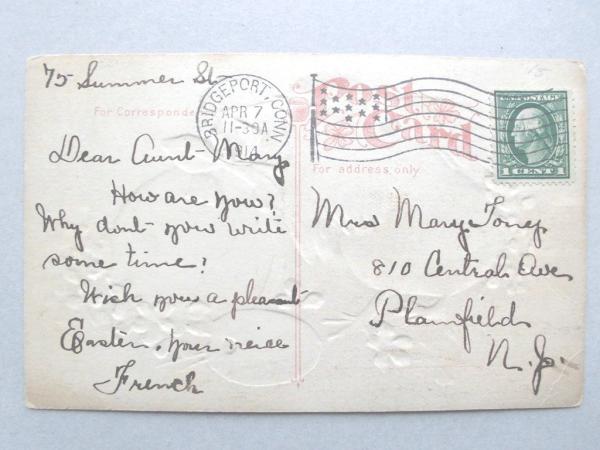 75 Summer St.
For Corresponde
BRIDGEPORT, CONN.
APR 7
11-30A
1914
Post Card
For address only.
U.S. POSTAGE
1 CENT 1
15
Dear Aunt Mary
How are you?
Why dont you write
some time?
Wish you a pleasant
Easter. your neice
French
Mrs Mary Torrey
810 Central Ave
Plainfield
N. J.